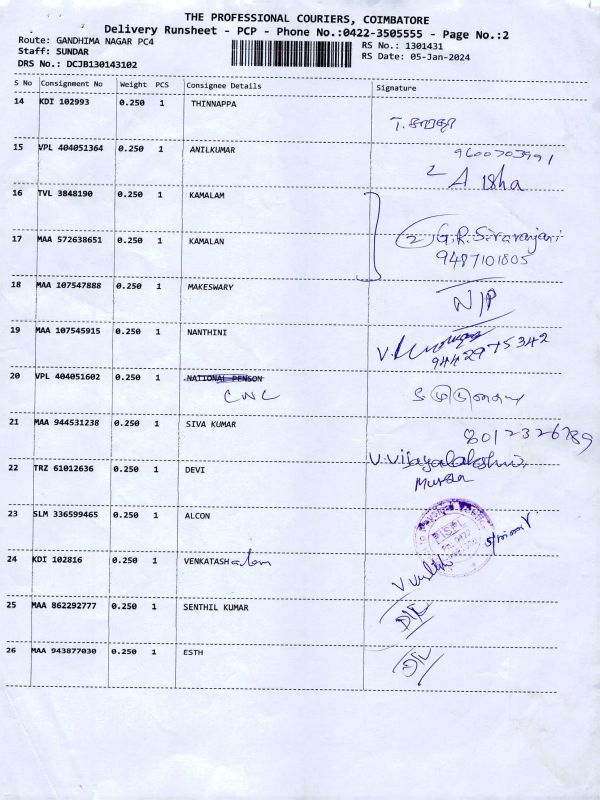 THE PROFESSIONAL COURIERS, COIMBATORE
Delivery Runsheet - PCP - Phone No.:0422-3505555 - Page No.:2
Route: GANDHIMA NAGAR PC4
RS No.: 1301431
Staff: SUNDAR
RS Date: 05-Jan-2024
DRS No.: DCJB130143102
S No Consignment No Weight PCS Consignee Details Signature
14 KDI 102993 0.250 1 THINNAPPA
T.
15 VPL 404051364 0.250 1 ANILKUMAR 9600703991
Aisha
16 TVL 3848190 0.250 1 KAMALAM
17 MAA 572638651 0.250 1 KAMALAN 2 G.R.Sivaranjani
9487101805
18 MAA 107547888 0.250 1 MAKESWARY
N/P
19 MAA 107545915 0.250 1 NANTHINI
9442975342
20 VPL 404051602 0.250 1 NATIONAL PENSON
CNC
21 MAA 944531238 0.250 1 SIVA KUMAR 8012326789
V.Vijayalakshmi
22 TRZ 61012636 0.250 1 DEVI
23 SLM 336599465 0.250 1 ALCON
24 KDI 102816 0.250 1 VENKATASH
25 MAA 862292777 0.250 1 SENTHIL KUMAR D/L
26 MAA 943877030 0.250 1 ESTH D/L